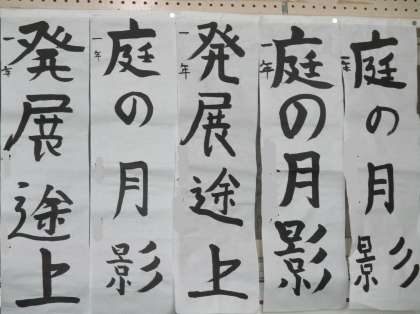 一年
庭の月影
一年
庭の月影
一年
発展途上
一年
庭の月影
一年
発展途上